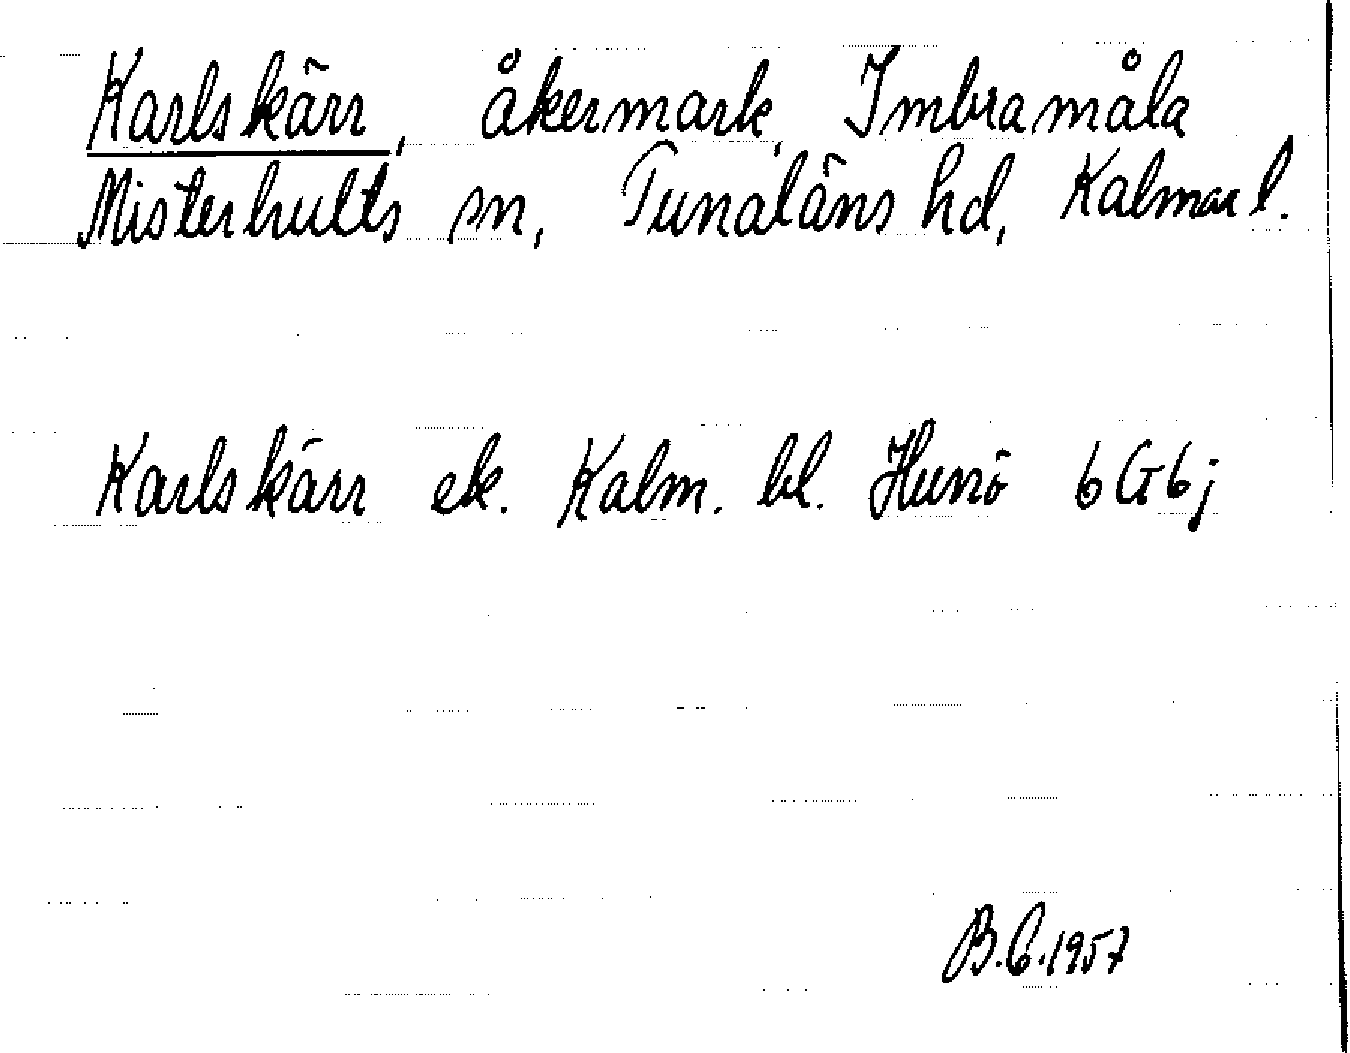 Karlskärr, åkermark, Imbramåla
Misterhults sn, Tunaläns hd, Kalmar l.
Karlskärr ek. Kalm. bl. Hunö 6G6j
B.C.1957